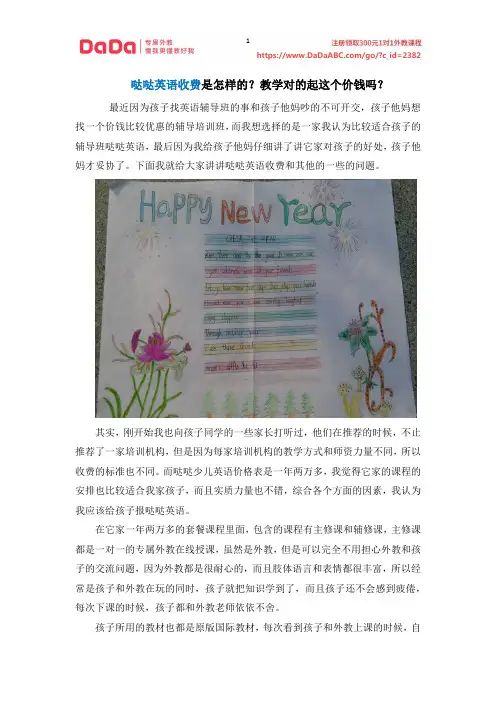 DaDa 专属外教
懂我更懂教好我
1
注册领取300元1对1外教课程
https://www.DaDaABC.com/go/?c_id=2382
哒哒英语收费是怎样的？教学对的起这个价钱吗？
最近因为孩子找英语辅导班的事和孩子他妈吵的不可开交，孩子他妈想
找一个价钱比较优惠的辅导培训班，而我想选择的是一家我认为比较适合孩子的
辅导班哒哒英语，最后因为我给孩子他妈仔细讲了讲它家对孩子的好处，孩子他
妈才妥协了。下面我就给大家讲讲哒哒英语收费和其他的一些的问题。
Happy New Year
其实，刚开始我也向孩子同学的一些家长打听过，他们在推荐的时候，不止
推荐了一家培训机构，但是因为每家培训机构的教学方式和师资力量不同，所以
收费的标准也不同。而哒哒少儿英语价格表是一年两万多，我觉得它家的课程的
安排也比较适合我家孩子，而且实质力量也不错，综合各个方面的因素，我认为
我应该给孩子报哒哒英语。
在它家一年两万多的套餐课程里面，包含的课程有主修课和辅修课，主修课
都是一对一的专属外教在线授课，虽然是外教，但是可以完全不用担心外教和孩
子的交流问题，因为外教都是很耐心的，而且肢体语言和表情都很丰富，所以经
常是孩子和外教在玩的同时，孩子就把知识学到了，而且孩子还不会感到疲倦，
每次下课的时候，孩子都和外教老师依依不舍。
孩子所用的教材也都是原版国际教材，每次看到孩子和外教上课的时候，自